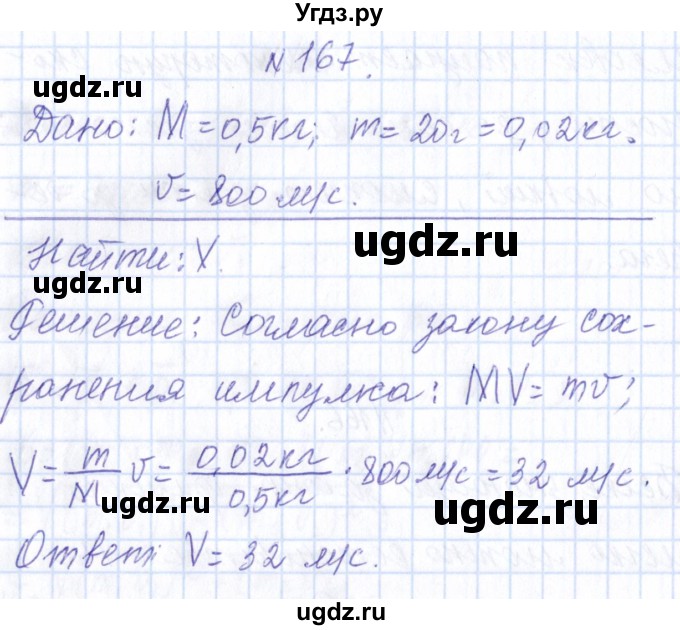 Угдз.ру
№167.
ugdz.ru ugdz.ru
Дано: M = 0,5кг; m = 20г = 0,02кг.
ugdz.ru
v = 800 м/с.
Найти: V.
ugdz.ru
ugdz.ru
Решение: Согласно закону сох-
ранения импулка: MV = mv;
V = m/M v = 0,02кг/0,5кг · 800 м/с = 32 м/с.
ugdz.ru ugdz.ru
Ответ: V = 32 м/с.
ugdz.ru